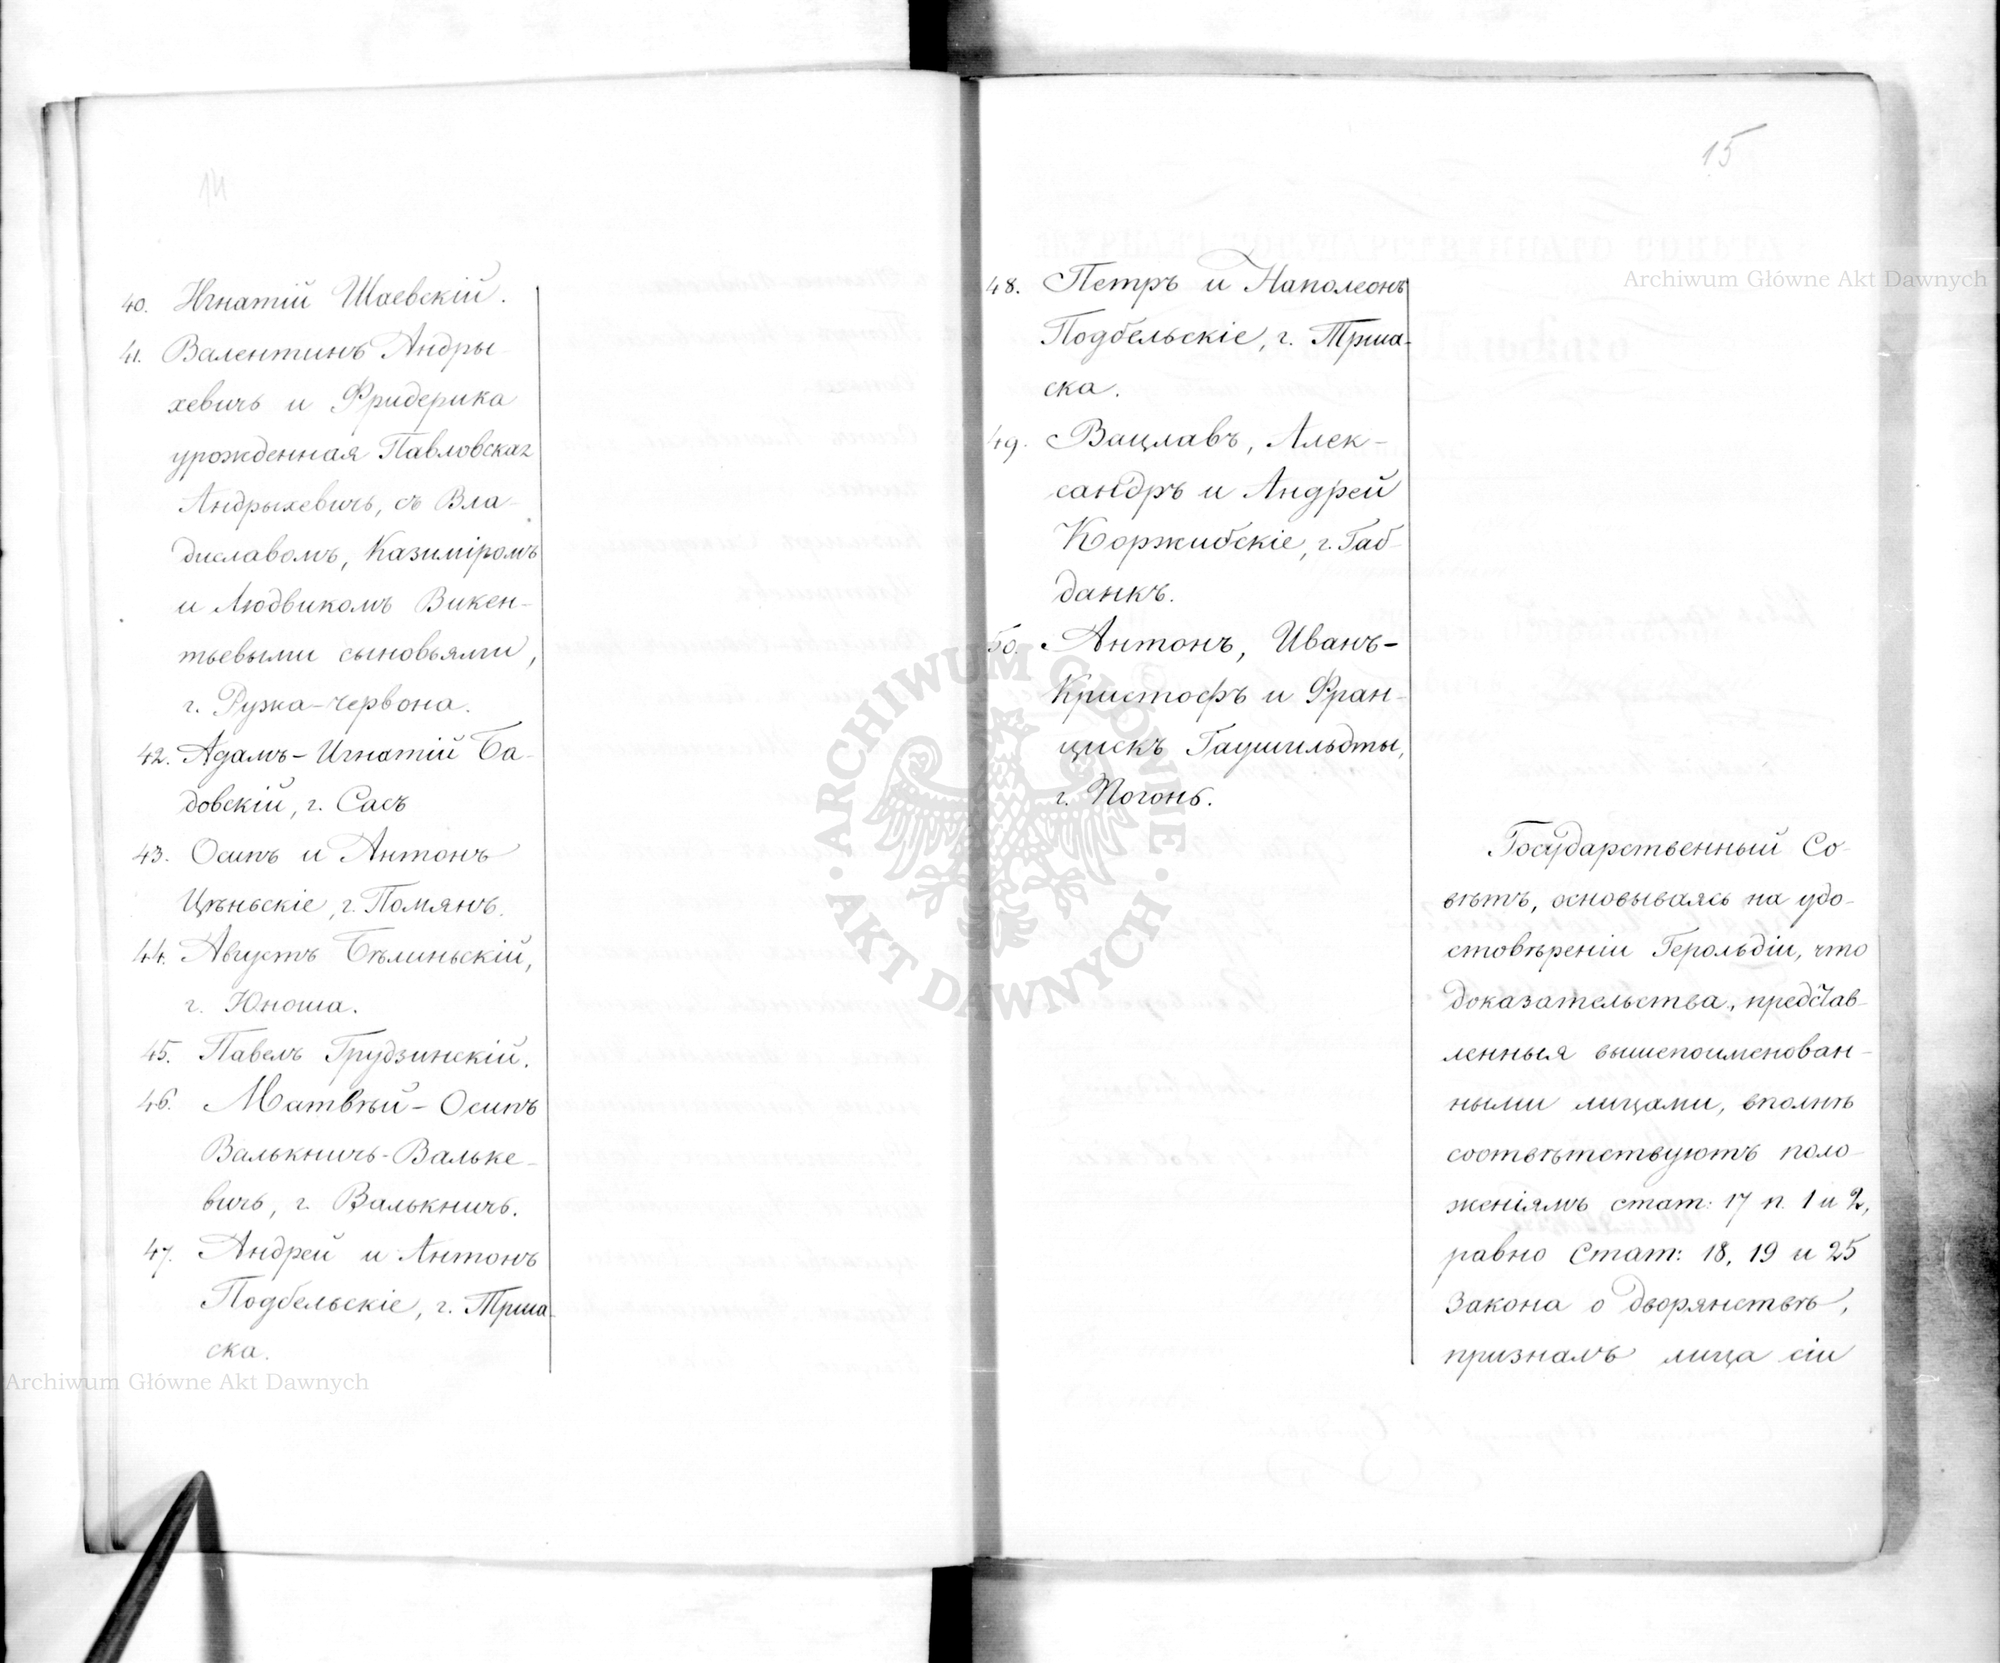 14
40. Игнатій Шаевскій.
41. Валентинъ Андры-
хевичъ и Фридерика
урожденная Павловская
Андрыхевичъ, съ Вла-
диславомъ, Казиміромъ
и Людвикомъ Викен-
тьевыми сыновьями,
г. Ружа-червона.
42. Адамъ-Игнатій Ба-
довскій, г. Сасъ
43. Осипъ и Антонъ
Цѣньскіе, г. Помянъ.
44. Августъ Бѣлиньскій,
г. Юноша.
45. Павелъ Грудзинскій.
46. Матвѣй-Осипъ
Валькничъ-Вальке-
вичъ, г. Валькничъ.
47. Андрей и Антонъ
Подбельскіе, г. Трша-
ска.
15
48. Петръ и Наполеонъ
Подбельскіе, г. Трша-
ска.
49. Вацлавъ, Алек-
сандръ и Андрей
Коржибскіе, г. Габ-
данкъ.
50. Антонъ, Иванъ-
Кристофъ и Фран-
цискъ Гаушильдты,
г. Погонь.
Государственный Со-
вѣтъ, основываясь на удо-
стовѣреніи Герольдіи, что
доказательства, представ-
ленныя вышепоименован-
ными лицами, вполнѣ
соотвѣтствуютъ поло-
женіямъ стат: 17 п. 1 и 2,
равно Стат: 18, 19 и 25
Закона о дворянствѣ,
призналъ лица сіи
Archiwum Główne Akt Dawnych
Archiwum Główne Akt Dawnych
ARCHIWUM GŁÓWNE · AKT DAWNYCH ·